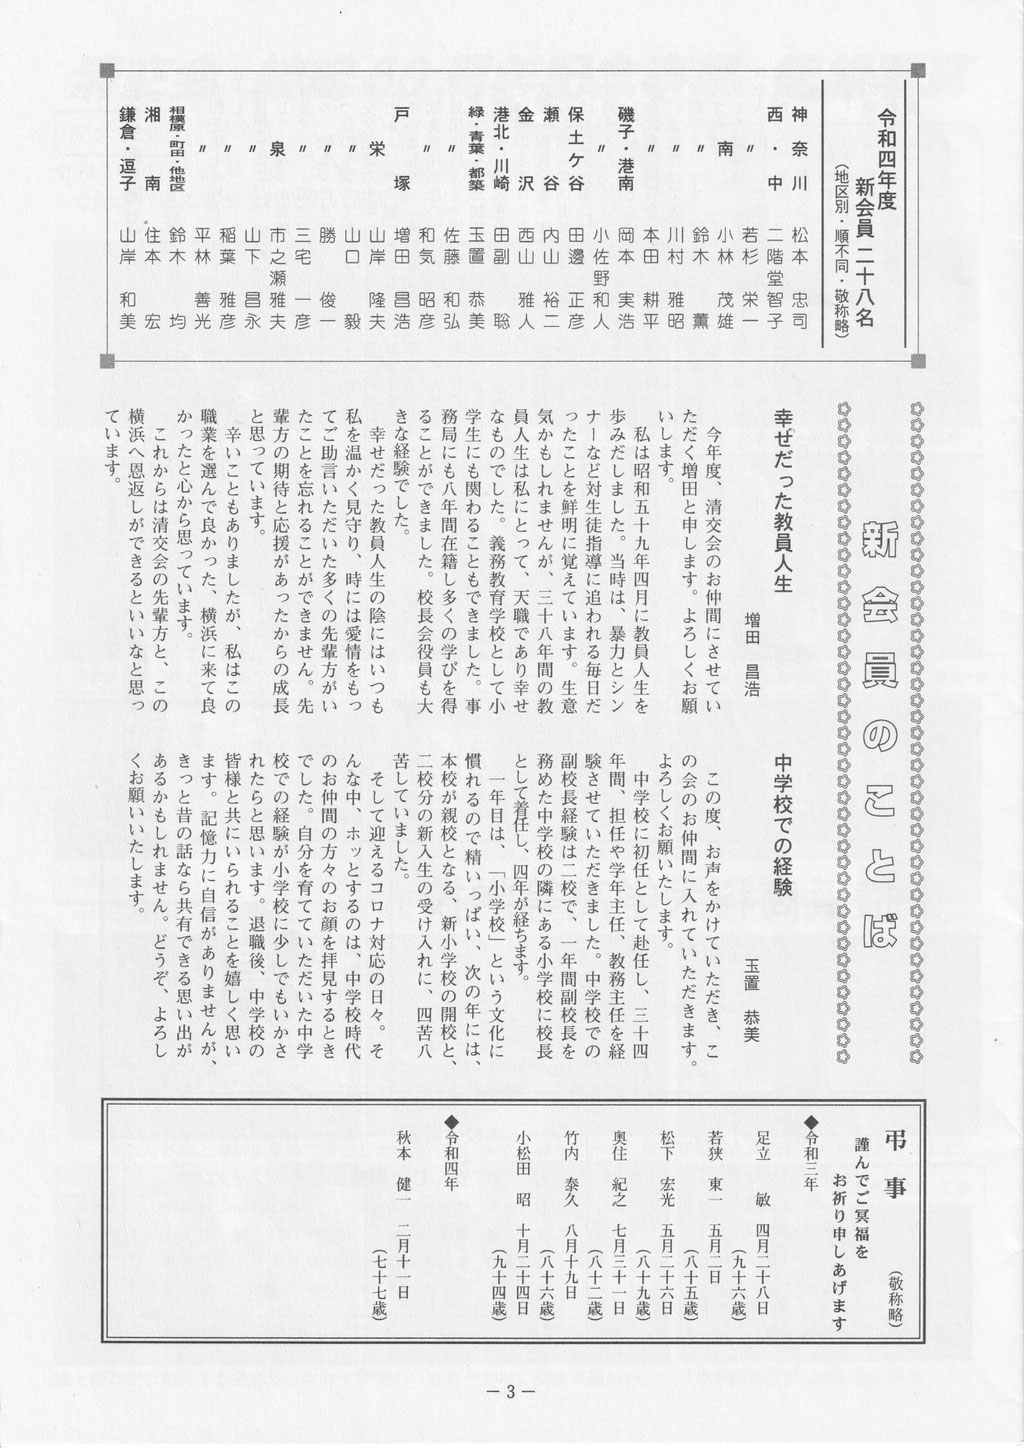 令和四年度
新会員 二十八名
(地区別・順不同・敬称略)
神奈川 松本 忠司
西・中 二階堂智子
〃 若杉 栄一
南 小林 茂雄
〃 鈴木 薫
〃 川村 雅昭
〃 本田 耕平
磯子・港南 岡本 実浩
〃 小佐野和人
保土ケ谷 田邊 正彦
瀬谷 内山 裕二
金沢 西山 雅人
港北・川崎 田副 聡
緑・青葉・都築 玉置 恭美
〃 佐藤 和弘
〃 和気 昭彦
戸塚 増田 昌浩
栄 山岸 隆夫
〃 山口 毅
〃 勝 俊一
〃 三宅 一彦
泉 市之瀬雅夫
〃 山下 昌永
〃 稲葉 雅彦
〃 平林 善光
相模原・町田・他地区 鈴木 均
湘南 住本 宏
鎌倉・逗子 山岸 和美
新会員のことば
幸せだった教員人生
増田 昌浩
今年度、清交会のお仲間にさせてい
ただく増田と申します。よろしくお願
いします。
私は昭和五十九年四月に教員人生を
歩みだしました。当時は、暴力とシン
ナーなど対生徒指導に追われる毎日だ
ったことを鮮明に覚えています。生意
気かもしれませんが、三十八年間の教
員人生は私にとって、天職であり幸せ
なものでした。義務教育学校として小
学生にも関わることもできました。事
務局にも八年間在籍し多くの学びを得
ることができました。校長会役員も大
きな経験でした。
幸せだった教員人生の陰にはいつも
私を温かく見守り、時には愛情をもっ
てご助言いただいた多くの先輩方がい
たことを忘れることができません。先
輩方の期待と応援があったからの成長
と思っています。
辛いこともありましたが、私はこの
職業を選んで良かった、横浜に来て良
かったと心から思っています。
これからは清交会の先輩方と、この
横浜へ恩返しができるといいなと思っ
ています。
中学校での経験
玉置 恭美
この度、お声をかけていただき、こ
の会のお仲間に入れていただきます。
よろしくお願いたします。
中学校に初任として赴任し、三十四
年間、担任や学年主任、教務主任を経
験させていただきました。中学校での
副校長経験は二校で、一年間副校長を
務めた中学校の隣にある小学校に校長
として着任し、四年が経ちます。
一年目は、「小学校」という文化に
慣れるので精いっぱい、次の年には、
本校が親校となる、新小学校の開校と、
二校分の新入生の受け入れに、四苦八
苦していました。
そして迎えるコロナ対応の日々。そ
んな中、ホッとするのは、中学校時代
のお仲間の方々のお顔を拝見するとき
でした。自分を育てていただいた中学
校での経験が小学校に少しでもいかさ
れたらと思います。退職後、中学校の
皆様と共にいられることを嬉しく思い
ます。記憶力に自信がありませんが、
きっと昔の話なら共有できる思い出が
あるかもしれません。どうぞ、よろし
くお願いいたします。
弔事 (敬称略)
謹んでご冥福を
お祈り申しあげます
◆令和三年
足立 敏 四月二十八日
(九十六歳)
若狭 東一 五月二日
(八十五歳)
松下 宏光 五月二十六日
(八十九歳)
奥住 紀之 七月三十一日
(八十二歳)
竹内 泰久 八月十九日
(八十六歳)
小松田 昭 十月二十四日
(九十四歳)
◆令和四年
秋本 健一 二月十一日
(七十七歳)
－3－